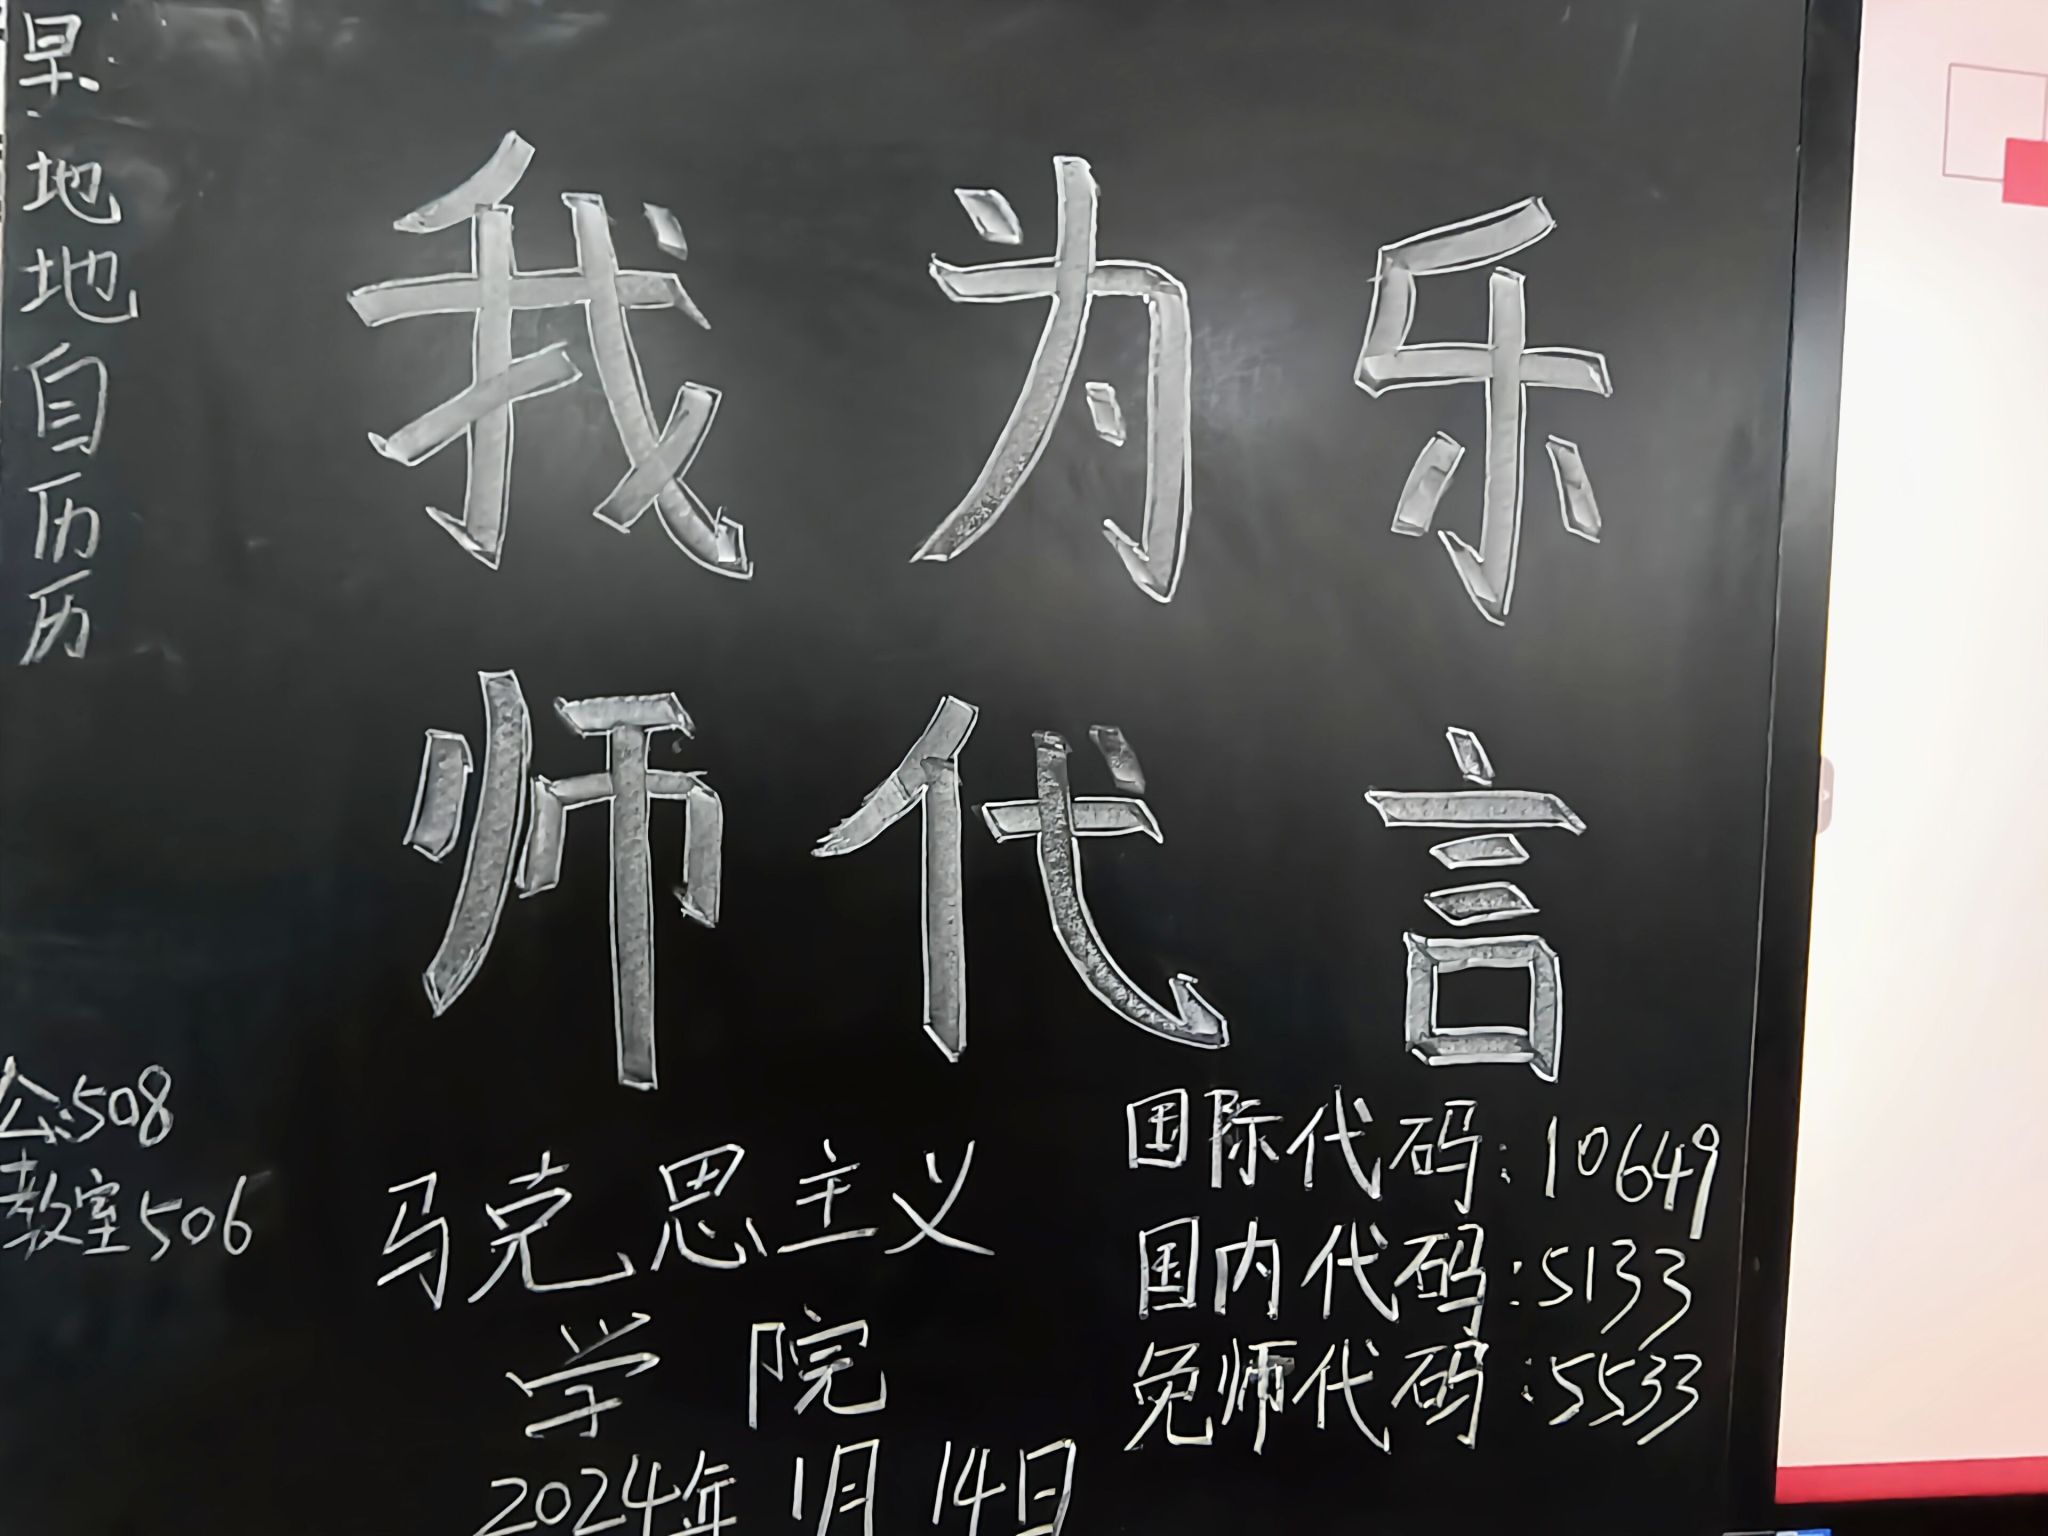 早:
地
地
自
历
历
我为乐
师代言
公508
教室506
马克思主义
学院
2024年1月14日
国际代码:10649
国内代码:5133
免师代码:5533